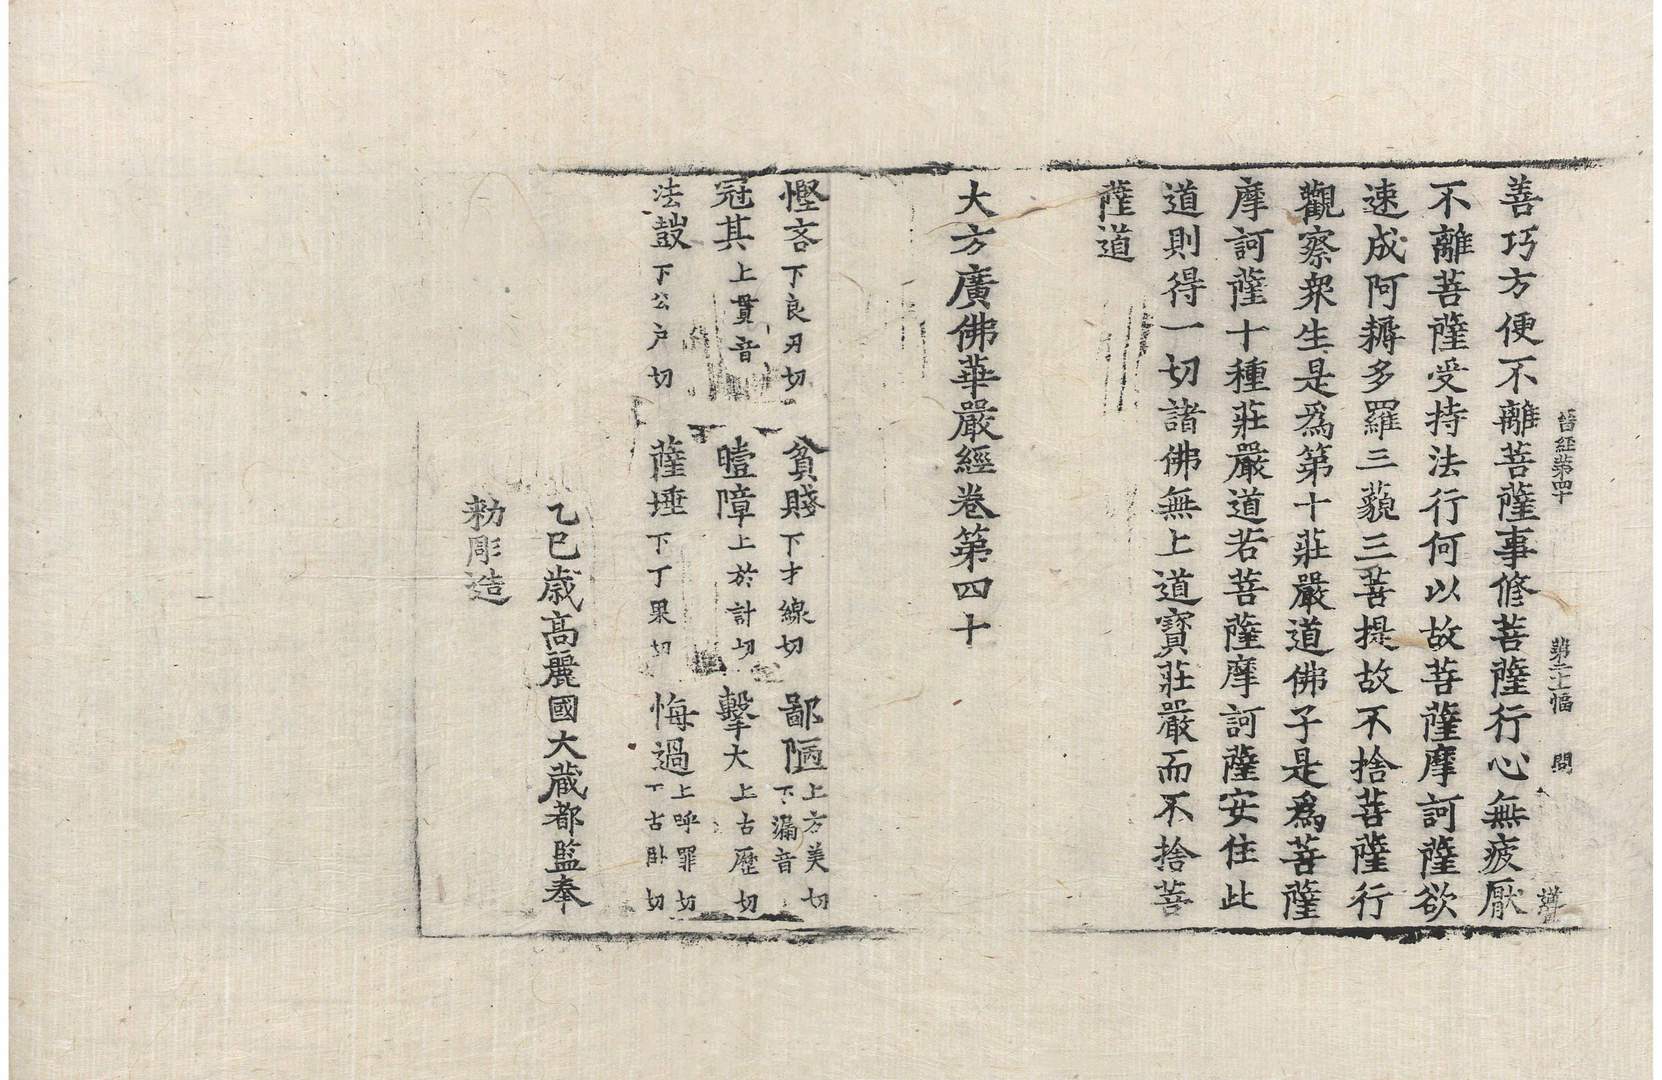 晉經第四十 第二十幅 問
善巧方便不離菩薩事修菩薩行心無疲厭
不離菩薩受持法行何以故菩薩摩訶薩欲
速成阿耨多羅三藐三菩提故不捨菩薩行
觀察衆生是爲第十莊嚴道佛子是爲菩薩
摩訶薩十種莊嚴道若菩薩摩訶薩安住此
道則得一切諸佛無上道寶莊嚴而不捨菩
薩道
大方廣佛華嚴經卷第四十
慳吝下良刃切 貧賤下才線切 鄙陋上方美切下漏音
冠其上貫音 曀障上於計切 擊大上古歷切
法鼓下公户切 薩埵下丁果切 悔過上呼罪切下古卧切
乙巳歳高麗國大藏都監奉
勑彫造